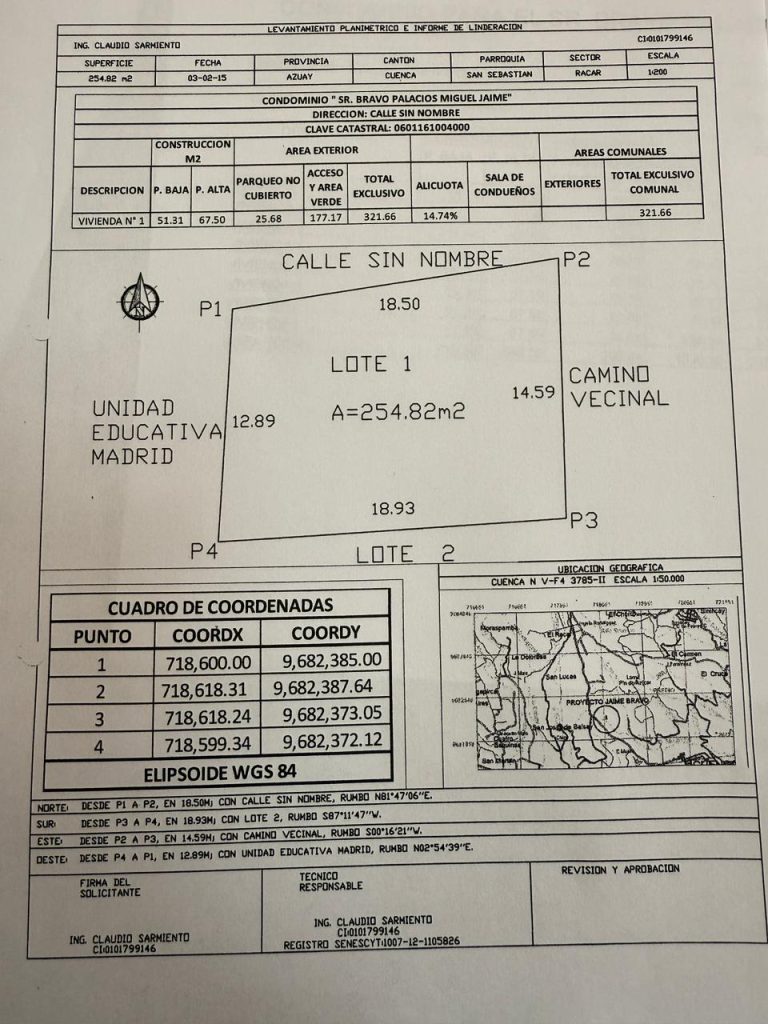 LEVANTAMIENTO PLANIMETRICO E INFORME DE LINDERACION
ING. CLAUDIO SARMIENTO CI:0101799146
SUPERFICIE FECHA PROVINCIA CANTON PARROQUIA SECTOR ESCALA
254.82 m2 03-02-15 AZUAY CUENCA SAN SEBASTIAN RACAR 1:200
CONDOMINIO " SR. BRAVO PALACIOS MIGUEL JAIME"
DIRECCION: CALLE SIN NOMBRE
CLAVE CATASTRAL: 0601161004000
CONSTRUCCION M2 AREA EXTERIOR AREAS COMUNALES
DESCRIPCION P. BAJA P. ALTA PARQUEO NO CUBIERTO ACCESO Y AREA VERDE TOTAL EXCLUSIVO ALICUOTA SALA DE CONDUEÑOS EXTERIORES TOTAL EXCULSIVO COMUNAL
VIVIENDA N° 1 51.31 67.50 25.68 177.17 321.66 14.74% 321.66
CALLE SIN NOMBRE
P2
P1
18.50
LOTE 1
A=254.82m2
14.59
CAMINO
VECINAL
UNIDAD
EDUCATIVA
MADRID
12.89
18.93
P3
P4
LOTE 2
CUADRO DE COORDENADAS
PUNTO COORDX COORDY
1 718,600.00 9,682,385.00
2 718,618.31 9,682,387.64
3 718,618.24 9,682,373.05
4 718,599.34 9,682,372.12
ELIPSOIDE WGS 84
UBICACION GEOGRAFICA
CUENCA N V-F4 3785-II ESCALA 1:50.000
El Carmen
San Lucas
PROYECTO JAIME BRAVO
NORTE: DESDE P1 A P2, EN 18.50M; CON CALLE SIN NOMBRE, RUMBO N81°47'06"E.
SUR: DESDE P3 A P4, EN 18.93M; CON LOTE 2, RUMBO S87°11'47"W.
ESTE: DESDE P2 A P3, EN 14.59M; CON CAMINO VECINAL, RUMBO S00°16'21"W.
OESTE: DESDE P4 A P1, EN 12.89M; CON UNIDAD EDUCATIVA MADRID, RUMBO N02°54'39"E.
FIRMA DEL
SOLICITANTE
ING. CLAUDIO SARMIENTO
CI:0101799146
TECNICO
RESPONSABLE
ING. CLAUDIO SARMIENTO
CI:0101799146
REGISTRO SENESCYT:1007-12-1105826
REVISION Y APROBACION